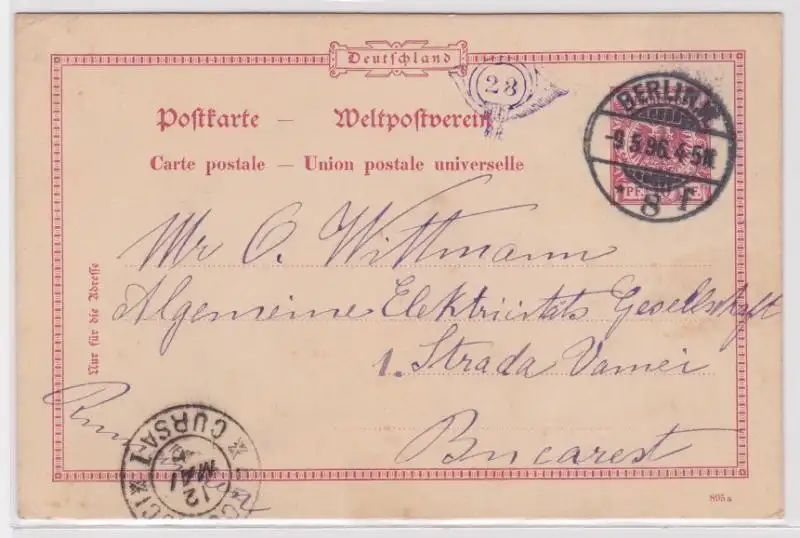 Deutschland
23
Postkarte — Weltpostverein
Carte postale — Union postale universelle
BERLIN.W.
-9.5.96.4-5N.
* 8 f
PF. 10 PF.
Nur für die Adresse
Mr O. Wittmann
Algemeine Elektricitäts Gesellschaft
1. Strada Vamei
Bucarest
CURSA-I
12
MAI
895a